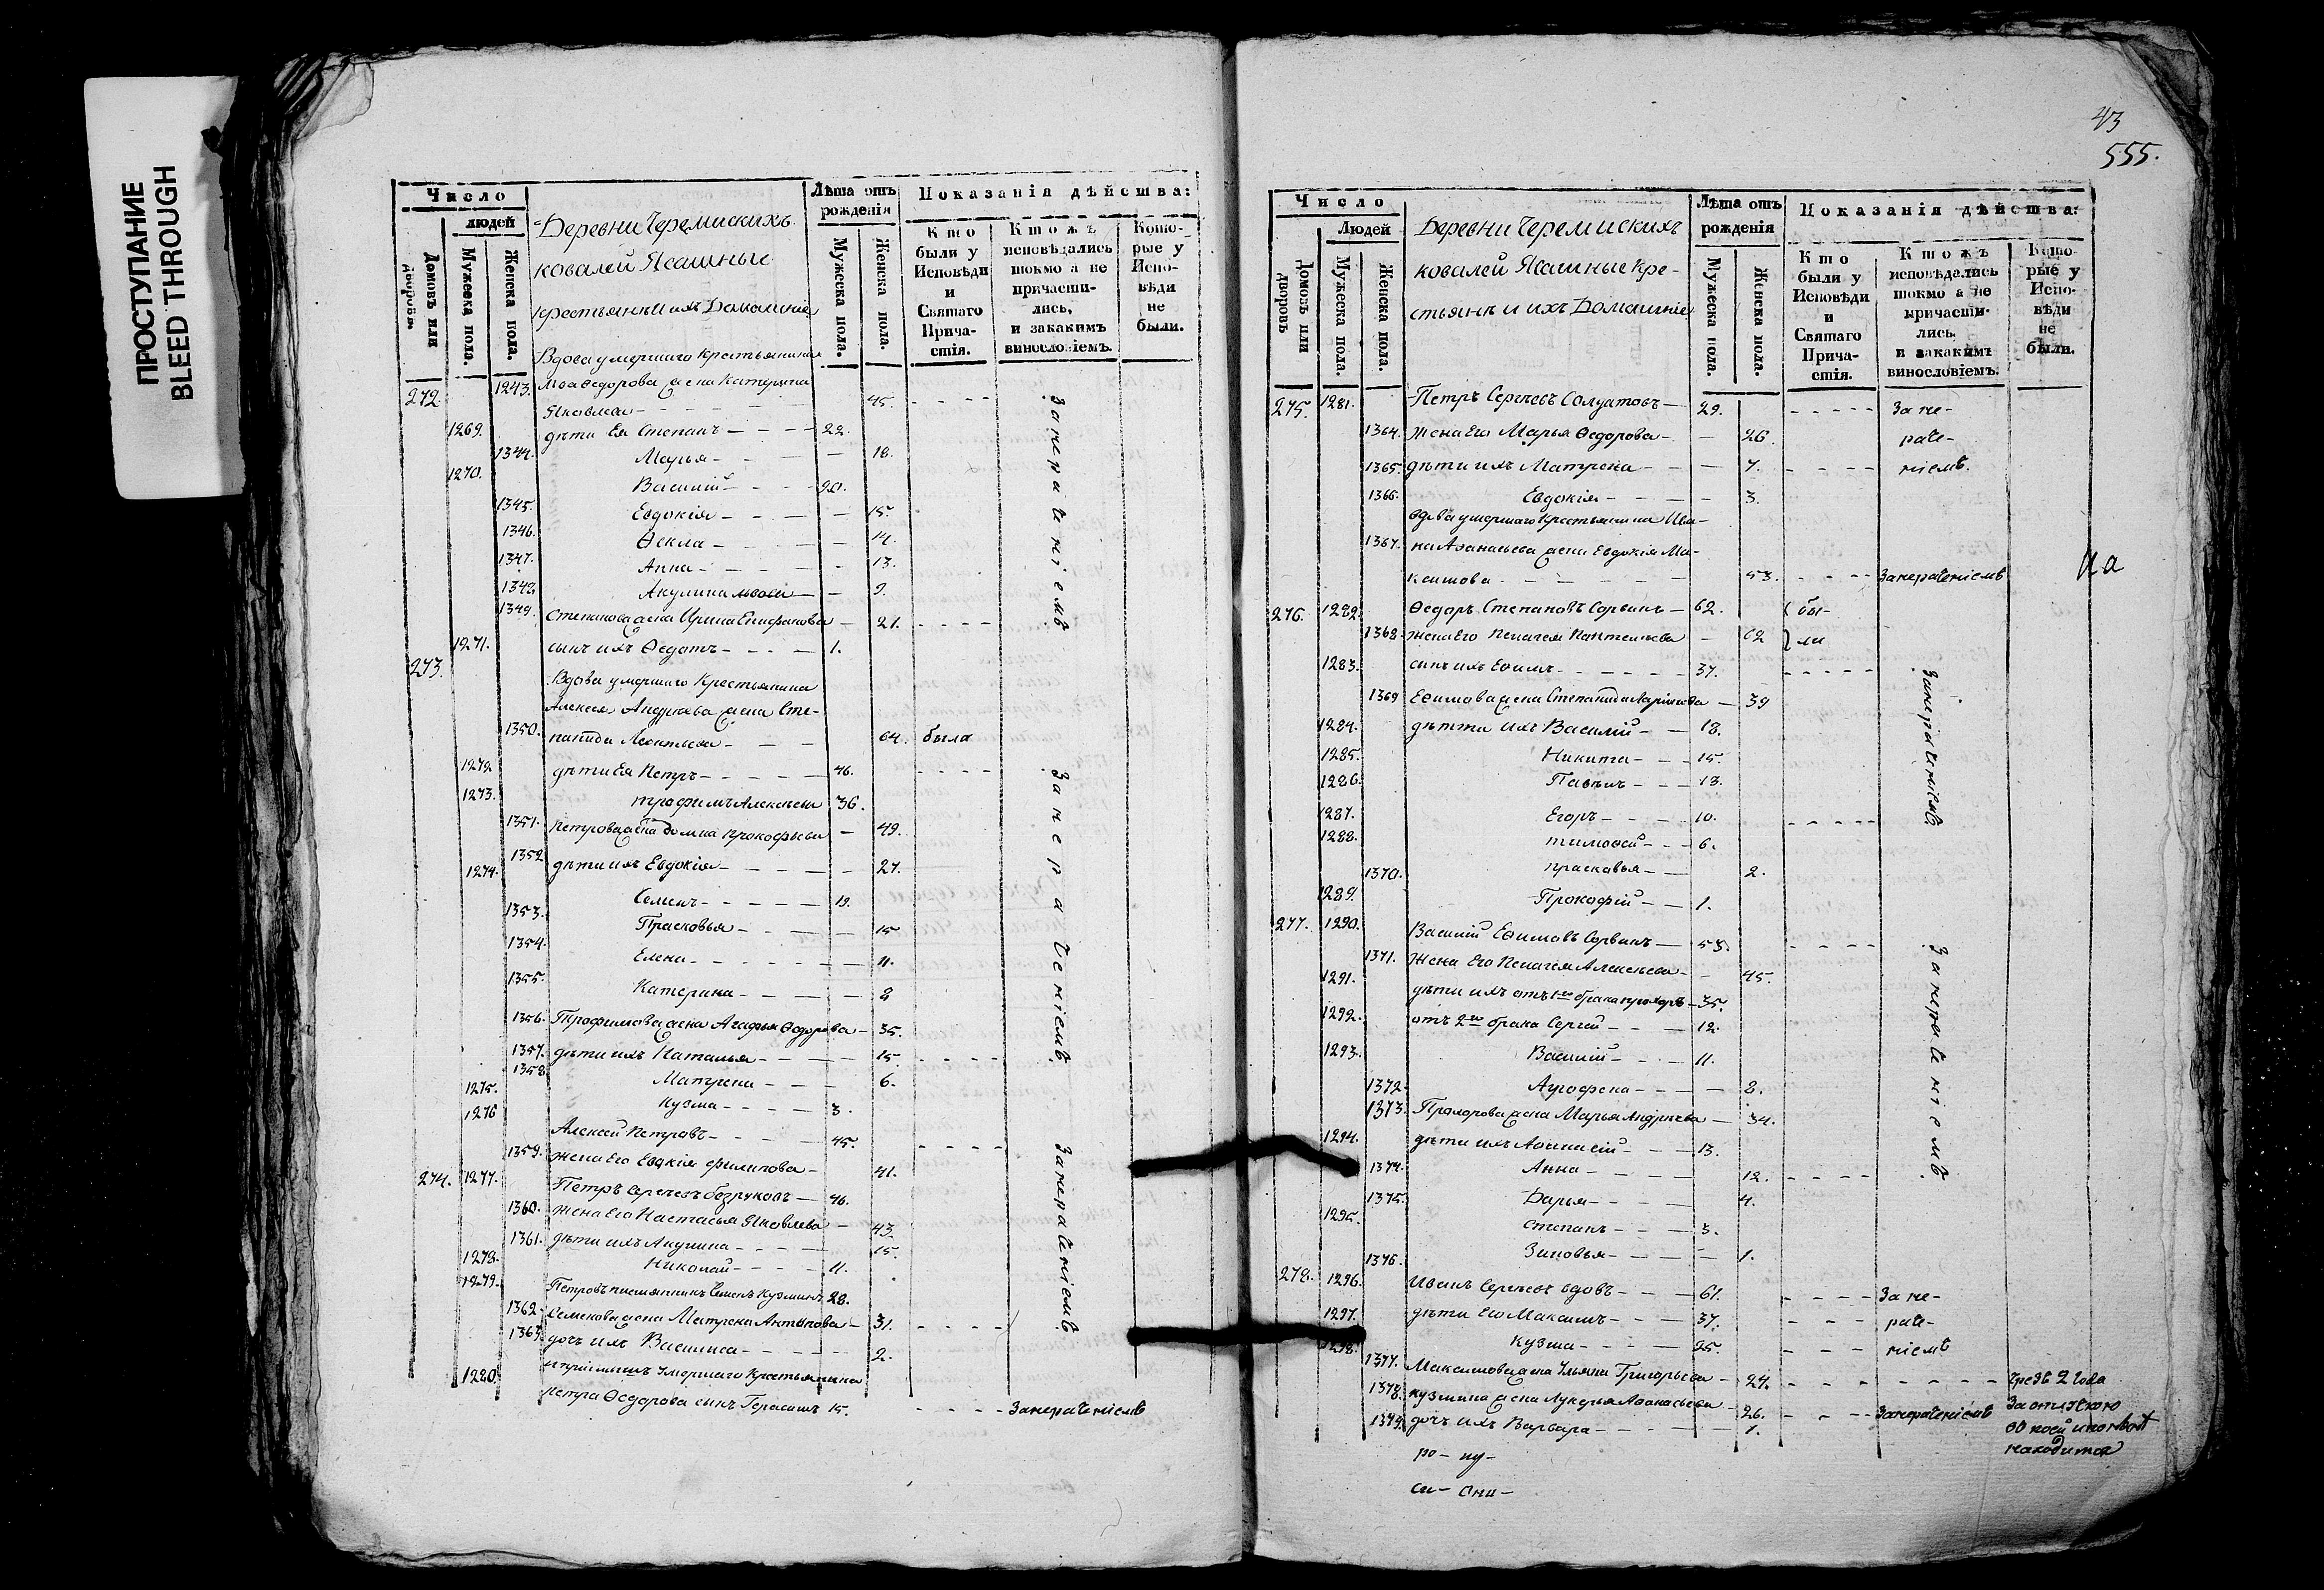 ПРОСТУПАНИЕ
BLEED THROUGH
43
555.
Число
людей
Домовъ или дворовъ.
Мужеска пола.
Женска пола.
Деревни Черемискихъ
ковалей Ясашные
крестьянѣ и ихъ Домашніе
Лѣта отъ рожденія
Мужеска пола.
Женска пола.
Показанія дѣйства:
Кто были у Исповѣди и Святаго Прича-стія.
Ктожъ исповѣдались токмо а не причасти-лись, и закакимъ винословіемъ.
Кото-рые у Испо-вѣди не были.
Вдова умершаго Крестьянина
272. 1243. Федорова жена Катерина
Яковлева 45.
1269. дѣти Ея Степанъ 22.
1344. Марья 18.
1270. Василій 20.
1345. Евдокія 15.
1346. Ѳекла 14.
1347. Анна 13.
1348. Акулина 9.
1349. Степанова жена Ирина Епифанова 21.
1271. сынъ ихъ Ѳедотъ 1.
занераченіемъ
273. Вдова умершаго Крестьянина
Алексея Андреева жена Сте-
1350. панида Леонтьева 64. была
1272. дѣти Ея Петръ 46.
1273. трофимъ Алексеевы 36.
1351. Петрова жена Домна прокофьева 49.
1352. дѣти ихъ Евдокія 27.
1274. Семенъ 19.
1353. Прасковья 15
1354. Елена 11.
1355. Катерина 8
1356. Трофимова жена Агафья Ѳедорова 35.
1357. дѣти ихъ Наталья 15.
1358 Матрена 6.
1275. Кузма 3.
1276 Алексей Петровъ 45.
1359. жена Его Евдокія филипова 41.
занераченіемъ
274. 1277. Петръ Сергеевъ безруковъ 46.
1360. жена Его Настасья Яковлева 43.
1361. дѣти ихъ Акулина 15.
1278. Николай 11.
1279. Петровъ племянникъ Семенъ Кузминъ 28.
1362. Семенова жена Матрена Антипова 31.
1363. дочъ ихъ Василиса 2.
занераченіемъ
1280. умершаго Крестьянина
петра Ѳедорова сынъ Герасимъ 15. занераченіемъ
Число
Людей
Домовъ или дворовъ
Мужеска пола.
Женска пола.
Деревни Черемискихъ
ковалей Ясашные кре-
стьянѣ и ихъ Домашніе
Лѣта отъ рожденія
Мужеска пола.
Женска пола.
Показанія дѣйства:
Кто были у Исповѣди и Святаго Прича-стія.
Ктожъ исповѣдались токмо а не причасти-лись, и закакимъ винословіемъ.
Кото-рые у Испо-вѣди не были.
275. 1281. Петръ Сергеевъ Солдатовъ 29. за не-
1364. жена Его Марья Ѳедорова 26. раче-
1365. дѣти ихъ Матрена 7. ніемъ.
1366. Евдокія 3.
вдова умершаго Крестьянина Ива-
1367. на Аѳанасьева жена Евдокія Ма-
ксимова 53. занераченіемъ
на
276. 1282. Ѳедоръ Степановъ Сорвинъ 62. бы-
1368. жена Его Пелагея Пантелеева 62 ли
1283. сынъ ихъ Еѳимъ 37.
1369 Еѳимова жена Степанида Ларіонова 39
1284. дѣти ихъ Василій 18.
1285. Никита 15.
1286. Павелъ 13.
1287. Егоръ 10.
1288. тимоѳей 6.
1370. прасковья 2.
1289. Прокофій 1.
занераченіемъ
277. 1290. Василій Еѳимовъ Сорвинъ 53.
1371. Жена Его Пелагея Алексеева 45.
1291. дѣти ихъ отъ 1го брака прохоръ 35.
1292. отъ 2го брака Сергей 12.
1293. Василій 11.
1372. Аграфена 8.
1373. Прохорова жена Марья Андреева 34.
1294. дѣти ихъ 13.
1374. Анна 12.
1375. Дарья 4.
1295. Степанъ 3.
1376. Зиновья 1.
занераченіемъ
278. 1296. Иванъ Сергеевъ вдовъ 61. за не-
1297. дѣти Его Максимъ 37. раче-
1298. Кузма 25. ніемъ
1377. Максимова жена Ульяна Григорьева 24. чрезъ 2 года
1378. кузмина жена Лукерья Аѳанасьева 26. занераченіемъ
1379. дочъ ихъ Варвара 1.
находится